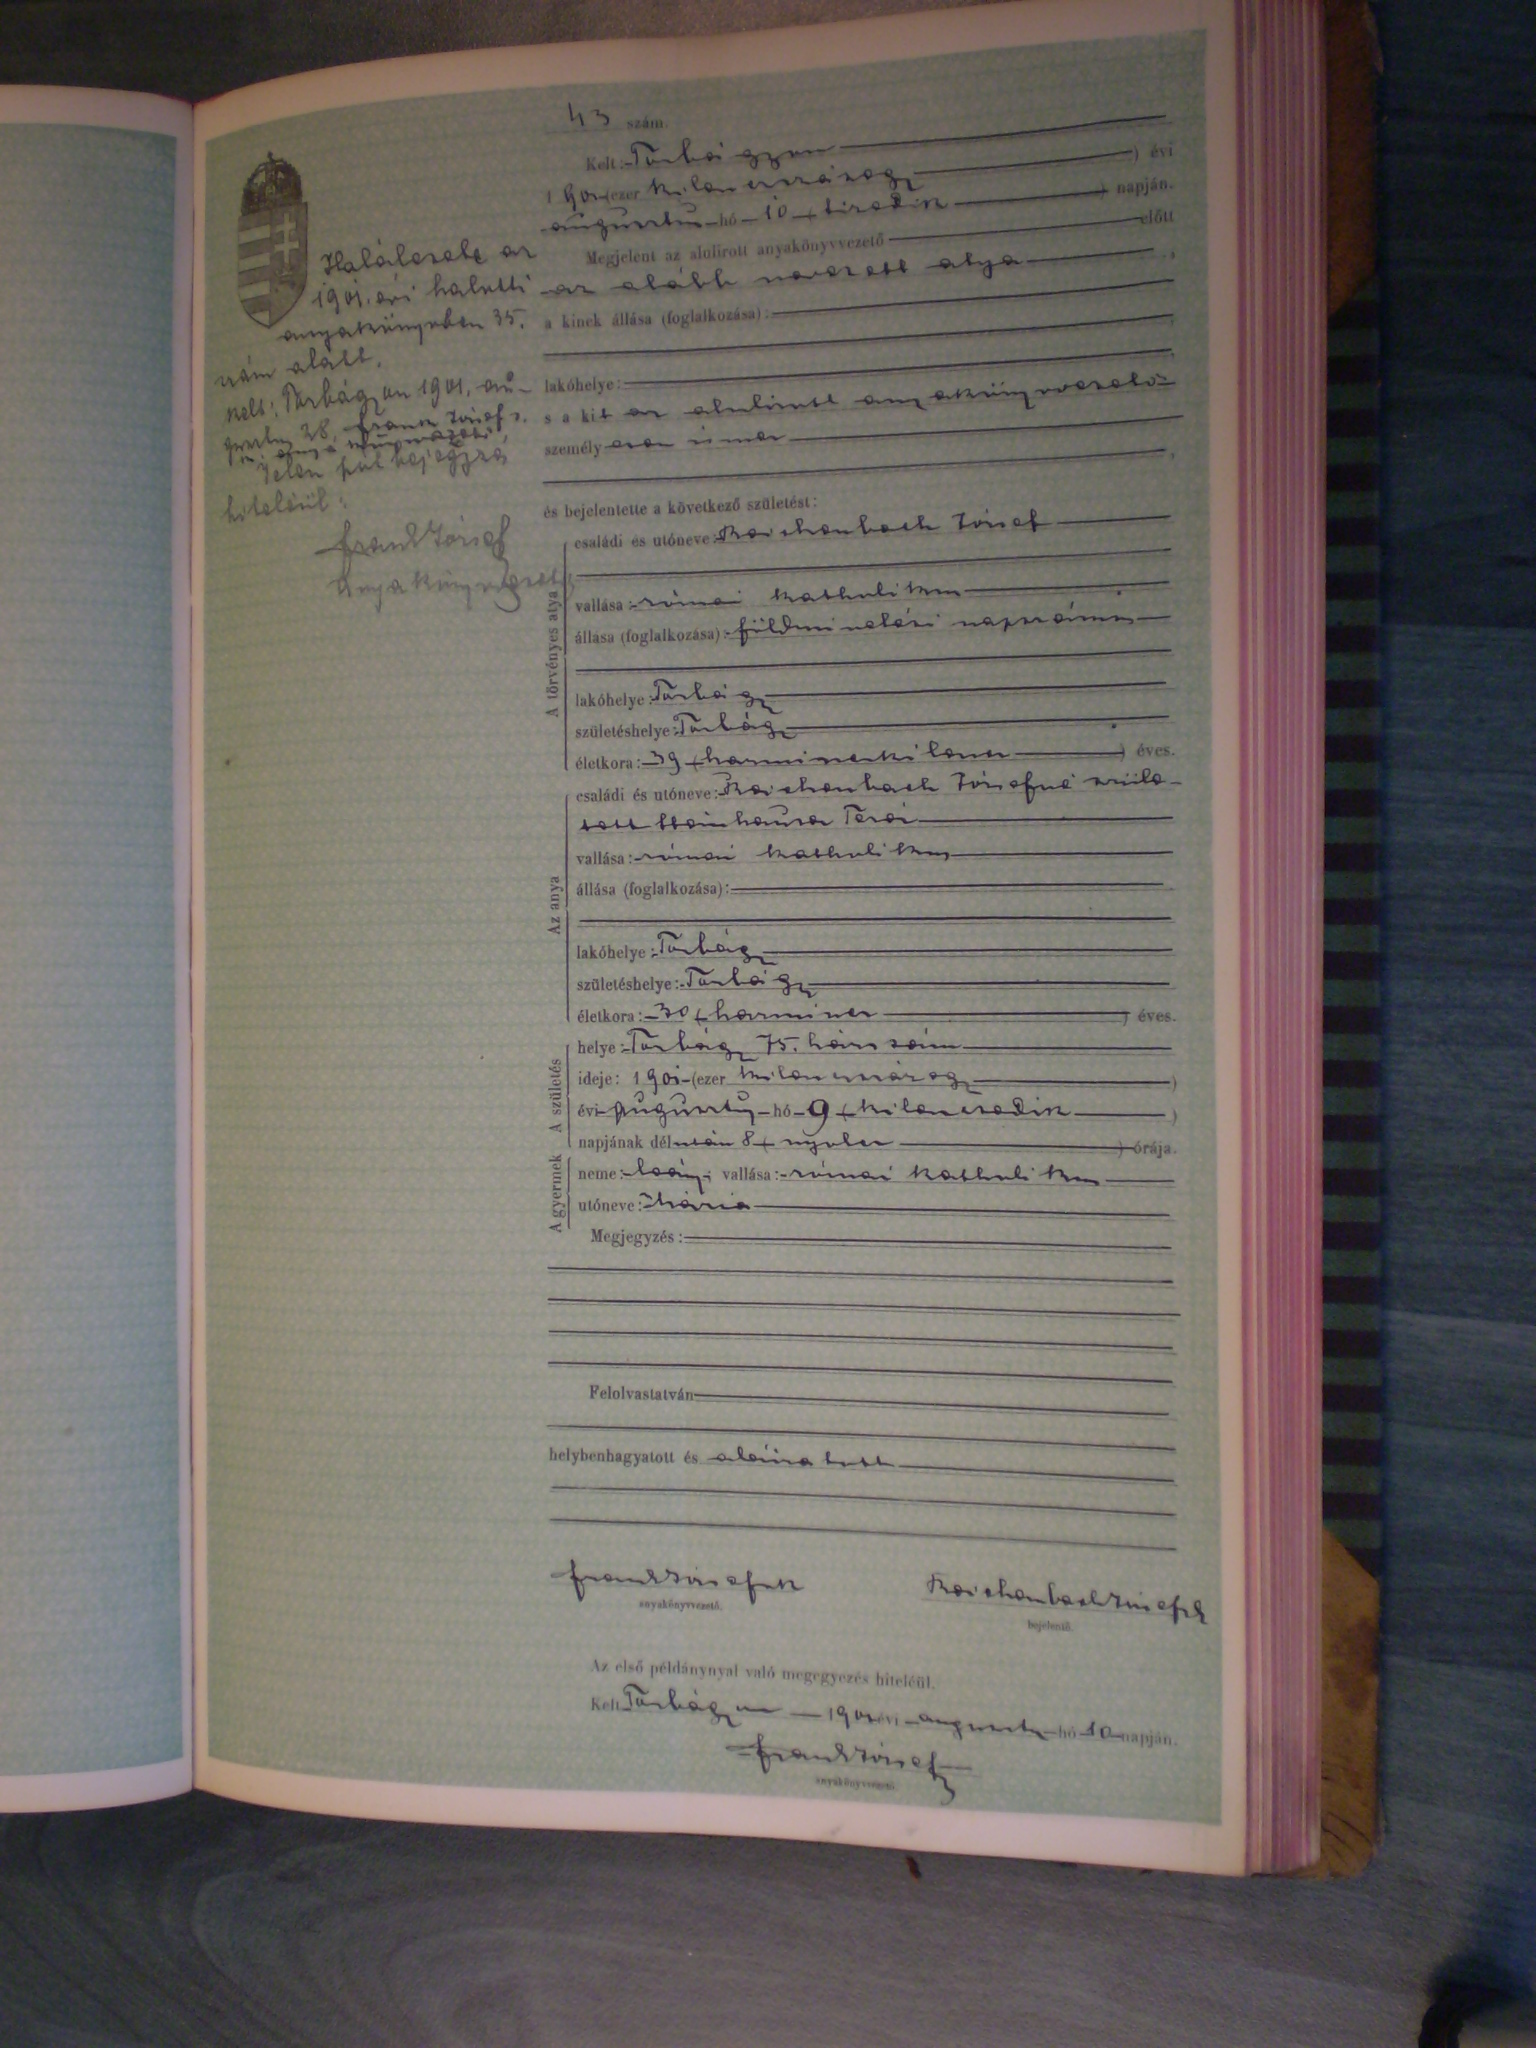 43 szám.
Kelt: Torbágyon
1901 (ezer kilencszázegy) évi
augusztus hó 10 (tizedik) napján.
Megjelent az alulirott anyakönyvvezető előtt
az alább nevezett atya,
a kinek állása (foglalkozása):
lakóhelye:
s a kit az alulirott anyakönyvvezető
személyesen ismer
és bejelentette a következő születést:
A törvényes atya
családi és utóneve: Reichenbach József
vallása: római katholikus
állása (foglalkozása): földmivelési napszámos
lakóhelye: Torbágy
születéshelye: Torbágy
életkora: 39 (harminckilenc) éves.
Az anya
családi és utóneve: Reichenbach Józsefné szüle-
tett Steinhauser Teréz
vallása: római katholikus
állása (foglalkozása):
lakóhelye: Torbágy
születéshelye: Torbágy
életkora: 30 (harminc) éves.
A születés
helye: Torbágy 75. házszám
ideje: 1901 (ezer kilencszázegy)
évi augusztus hó 9 (kilencedik)
napjának délután 8 (nyolc) órája.
A gyermek
neme: leány; vallása: római katholikus
utóneve: Mária
Megjegyzés:
Felolvastatván
helybenhagyatott és aláiratott
Frank József
anyakönyvvezető.
Reichenbach József
bejelentő.
Az első példánynyal való megegyezés hiteléül.
Kelt Torbágyon 1901 évi augusztus hó 10 napján.
Frank József
anyakönyvvezető.
Halálesete az
1901. évi halotti
anyakönyvben 35.
szám alatt.
Kelt: Torbágyon 1901. au-
gusztus 28. Frank József
Jelen bejegyzés
hiteléül:
Frank József
anyakönyvvezető